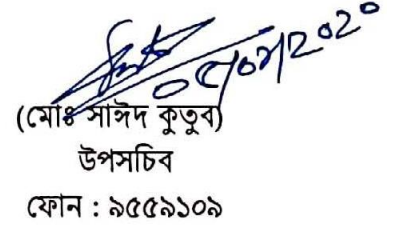 ০৫/০২/২০২০
(মোঃ সাঈদ কুতুব)
উপসচিব
ফোন : ৯৫৫৯১০৯